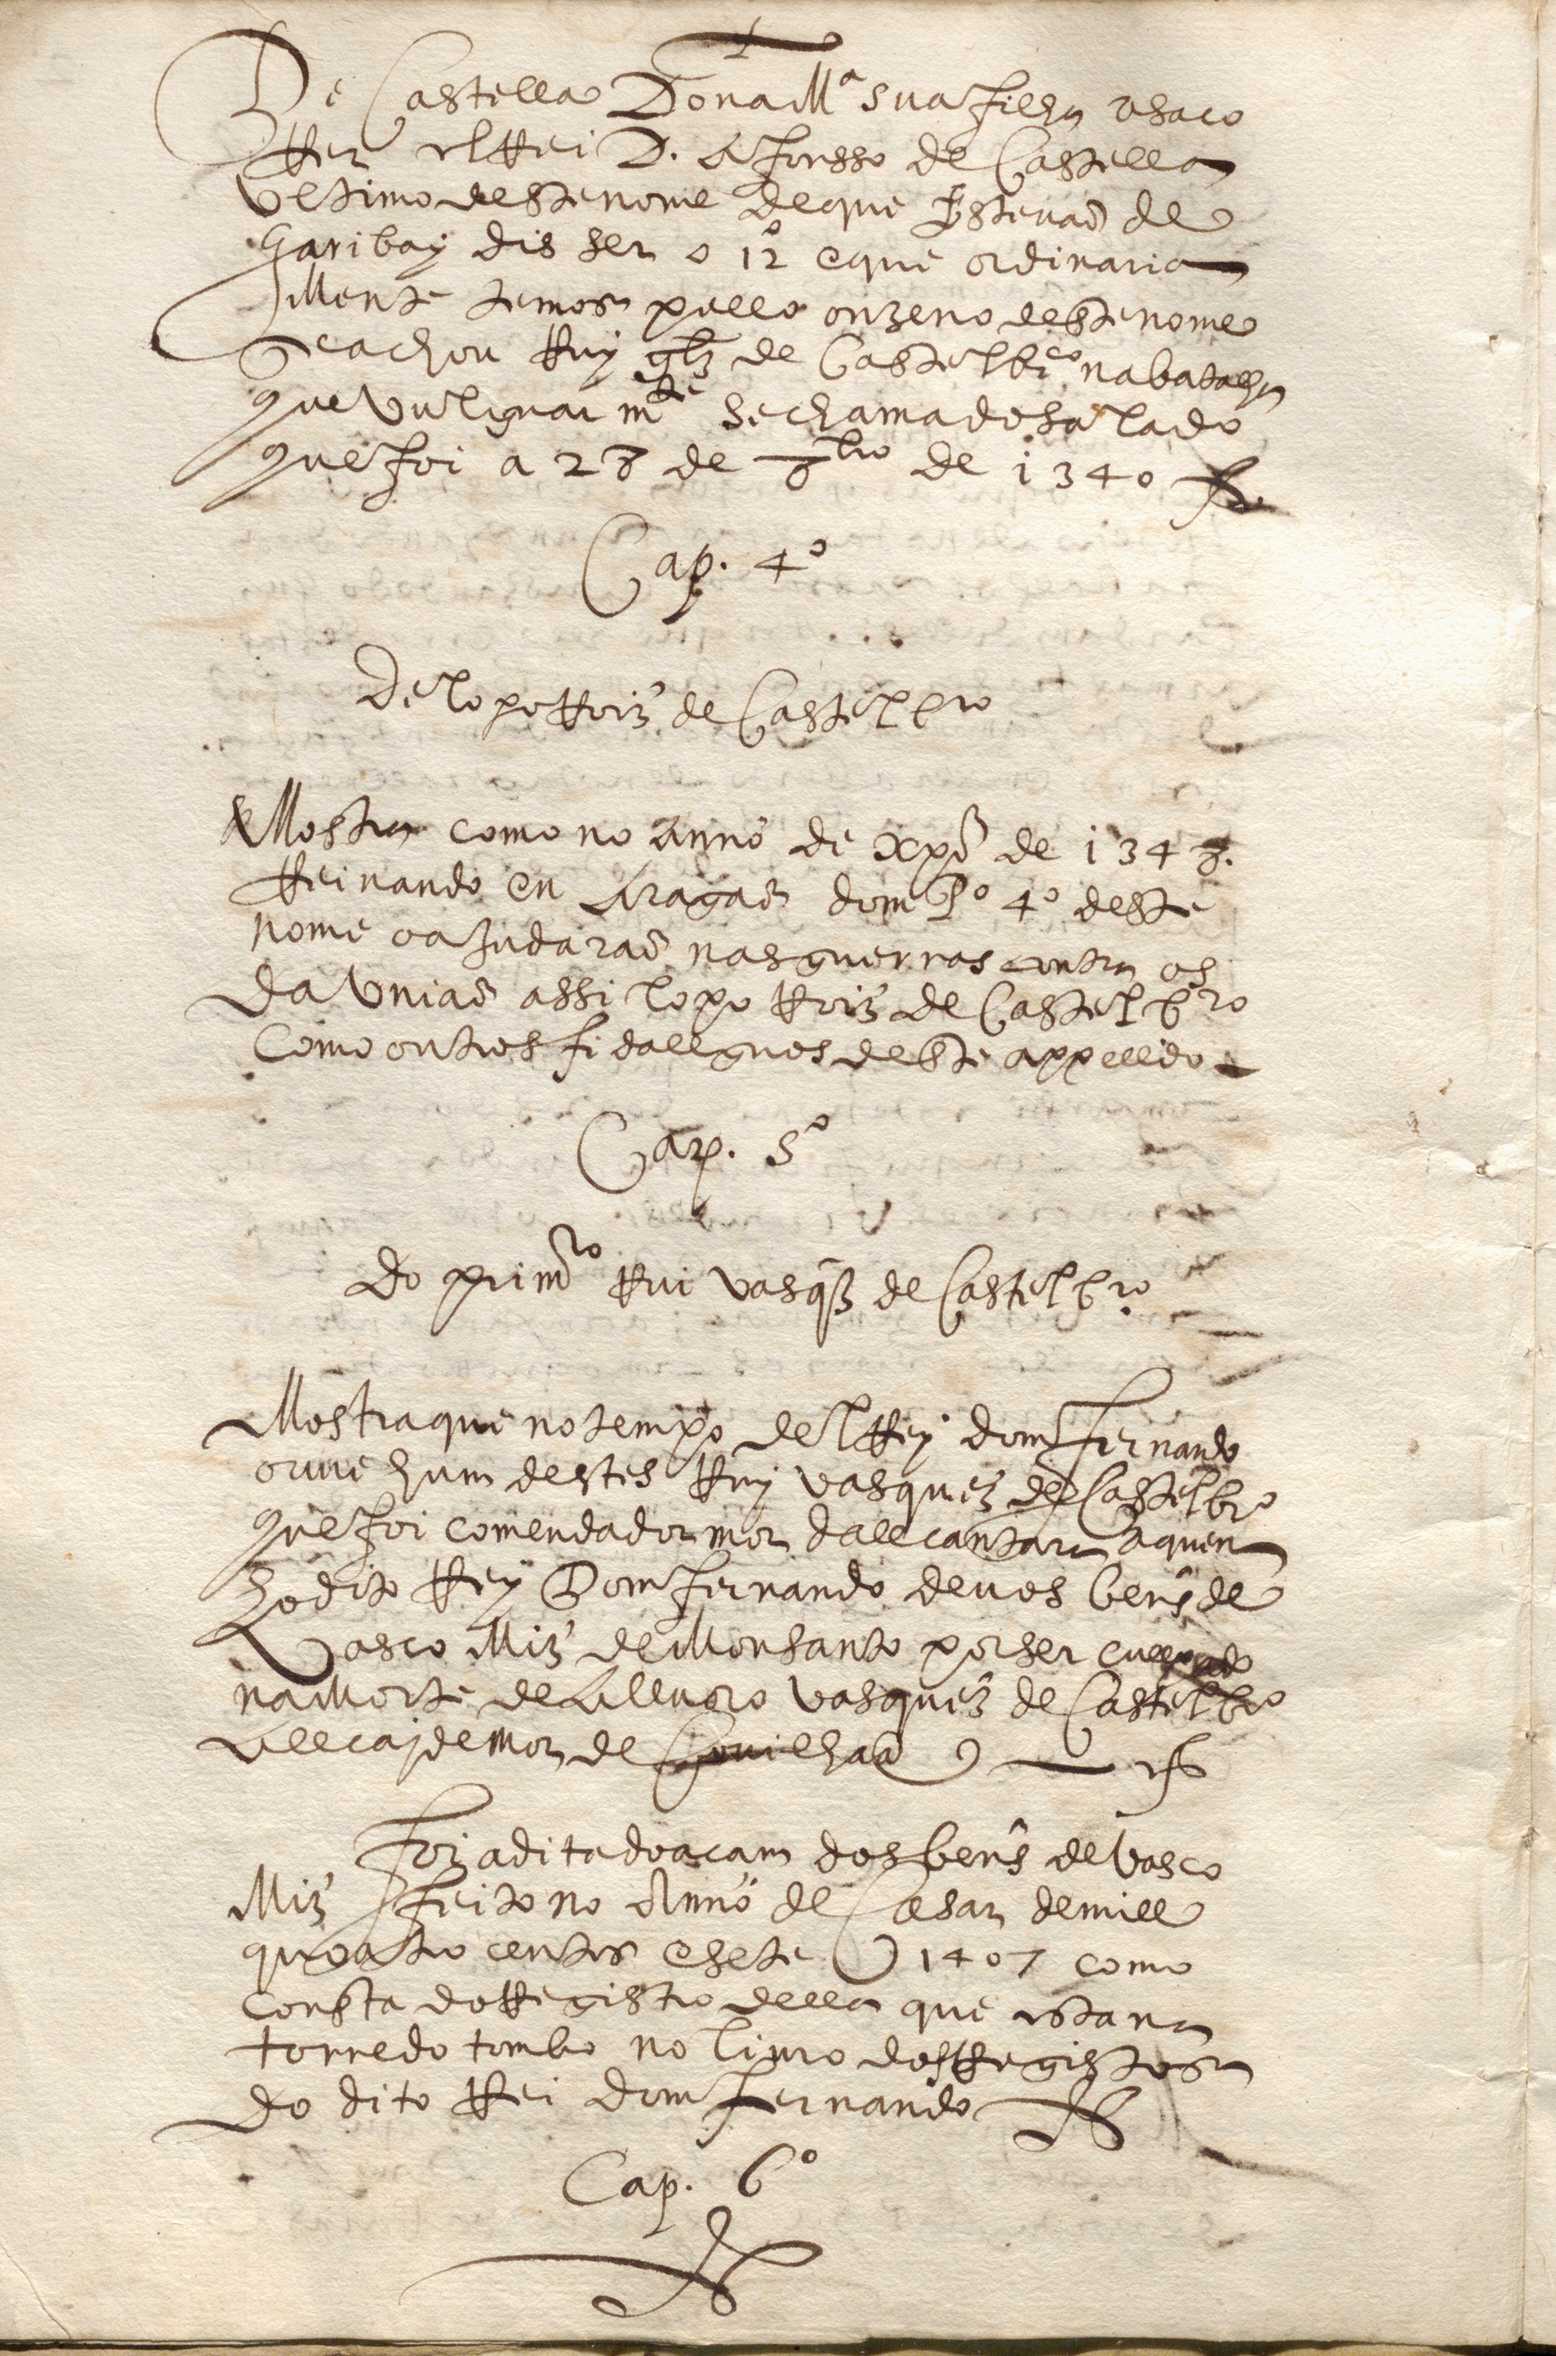 De Castella Dona Mª sua filha o saco
Rer elRei D. Afonsso de Castella
ultimo deste nome de que Estevaõ de
Garibay dis ser o 12º e que ordinaria
Mente temos pello onzeno deste nome
Se achou Ruy glz de Castelbrº na batalha
que vulgar mte se chama do salado
que foi a 28 de 8bro de 1340
Cap. 4º
De lopo Roiz de Castelbro
Mostra como no anno de xpõ de 1348.
Reinando en Aragaõ dom Pº 4º deste
nome o ajudaraõ nas guerras contra os
da Uniaõ assi lopo Roiz de Castelbro
Como outros fidallguos deste appellido
Cap. 5º
do primro Rui vasqz de Castelbro
Mostra que no tempo delRey dom fernando
ouve hum destes Ruy vasquez de Castelbro
que foi comendador mor dallcantara a quem
ho dito Rey Dom fernando deu os bens de
Vasco Miz de Monsanto por ser cullpado
na Morte de Alluaro vasquez de Castelbro
Allcayde mor de Covilhaã
Foi a dita doacam dos bens de Vasco
Miz feito no Anno de Cesar de mill
quoatro centos e sete 1407 como
consta do Registro della que esta na
torre do tombo no livro dos Registos
do dito Rei dom fernando
Cap. 6º